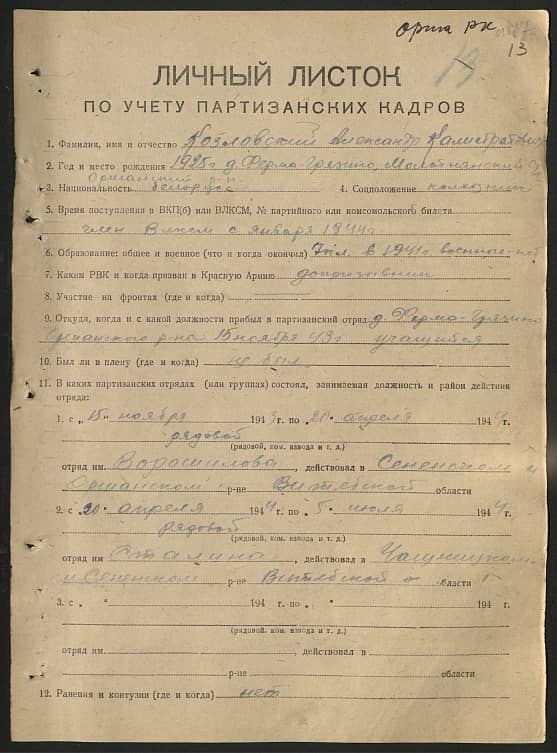 орша рк
13
13
ЛИЧНЫЙ ЛИСТОК
ПО УЧЕТУ ПАРТИЗАНСКИХ КАДРОВ
1. Фамилия, имя и отчество Козловский Александр Калистратович
2. Год и место рождения 1925 г д. Ферма-Грязино, Оршанский р-н
3. Национальность белорус 4. Соцположение колхозник
5. Время поступления в ВКП(б) или ВЛКСМ, № партийного или комсомольского билета
член Влксм с января 1944 г
6. Образование: общее и военное (что и когда окончил) 7 кл. в 1941 г. военное-нет
7. Каким РВК и когда призван в Красную Армию допризывник
8. Участие на фронтах (где и когда)
9. Откуда, когда и с какой должности прибыл в партизанский отряд д. Ферма-Грязино
Оршанского р-на 15 ноября 43 г учащийся
10. Был ли в плену (где и когда) не был
11. В каких партизанских отрядах (или группах) состоял, занимаемая должность и район действия
отряда:
1. с „15" ноября 1943 г. по „20" апреля 1944 г.
рядовой
(рядовой, ком. взвода и т. д.)
отряд им. Ворошилова, действовал в Сенненском и
Оршанском р-не Витебской области
2. с „20" апреля 1944 г. по „5" июля 1944 г.
рядовой
(рядовой, ком. взвода и т. д.)
отряд им Сталина, действовал в Чашникском
и Сененском р-не Витебской о области
3. с „ " 194 г. по „ " 194 г.
(рядовой, ком. взвода и т. д.)
отряд им. , действовал в
р-не области
12. Ранения и контузии (где и когда) нет